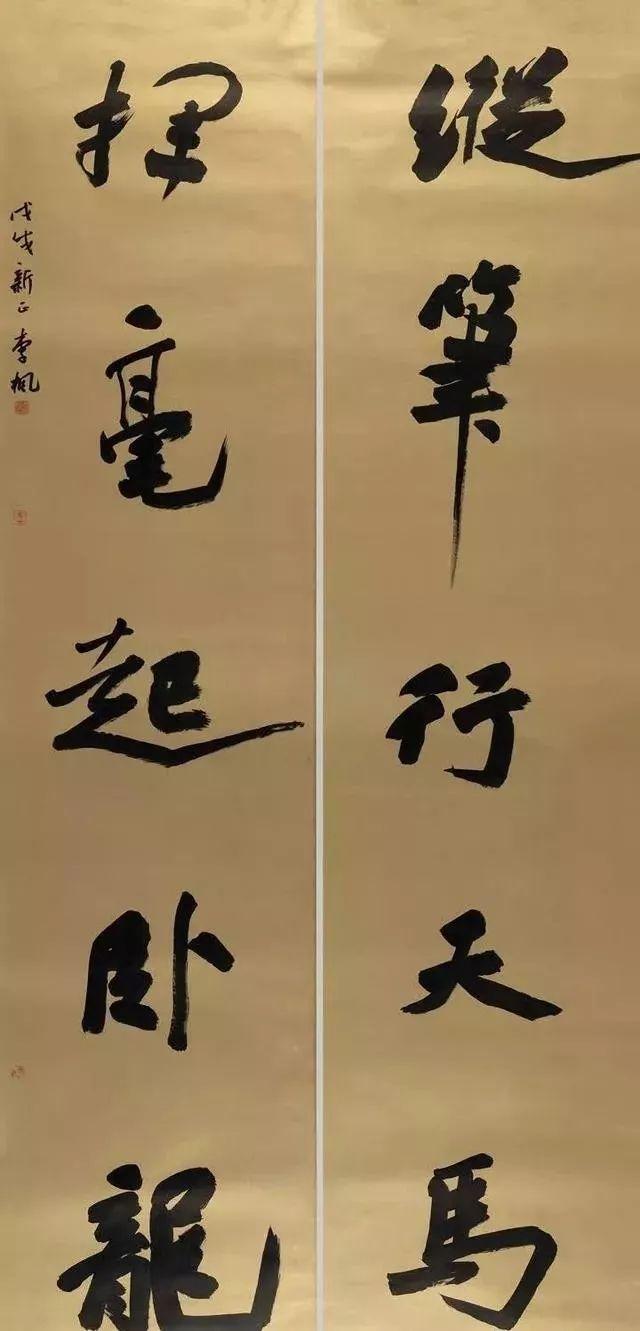 縱筆行天馬
揮毫起卧龍
戊戌新正李楓